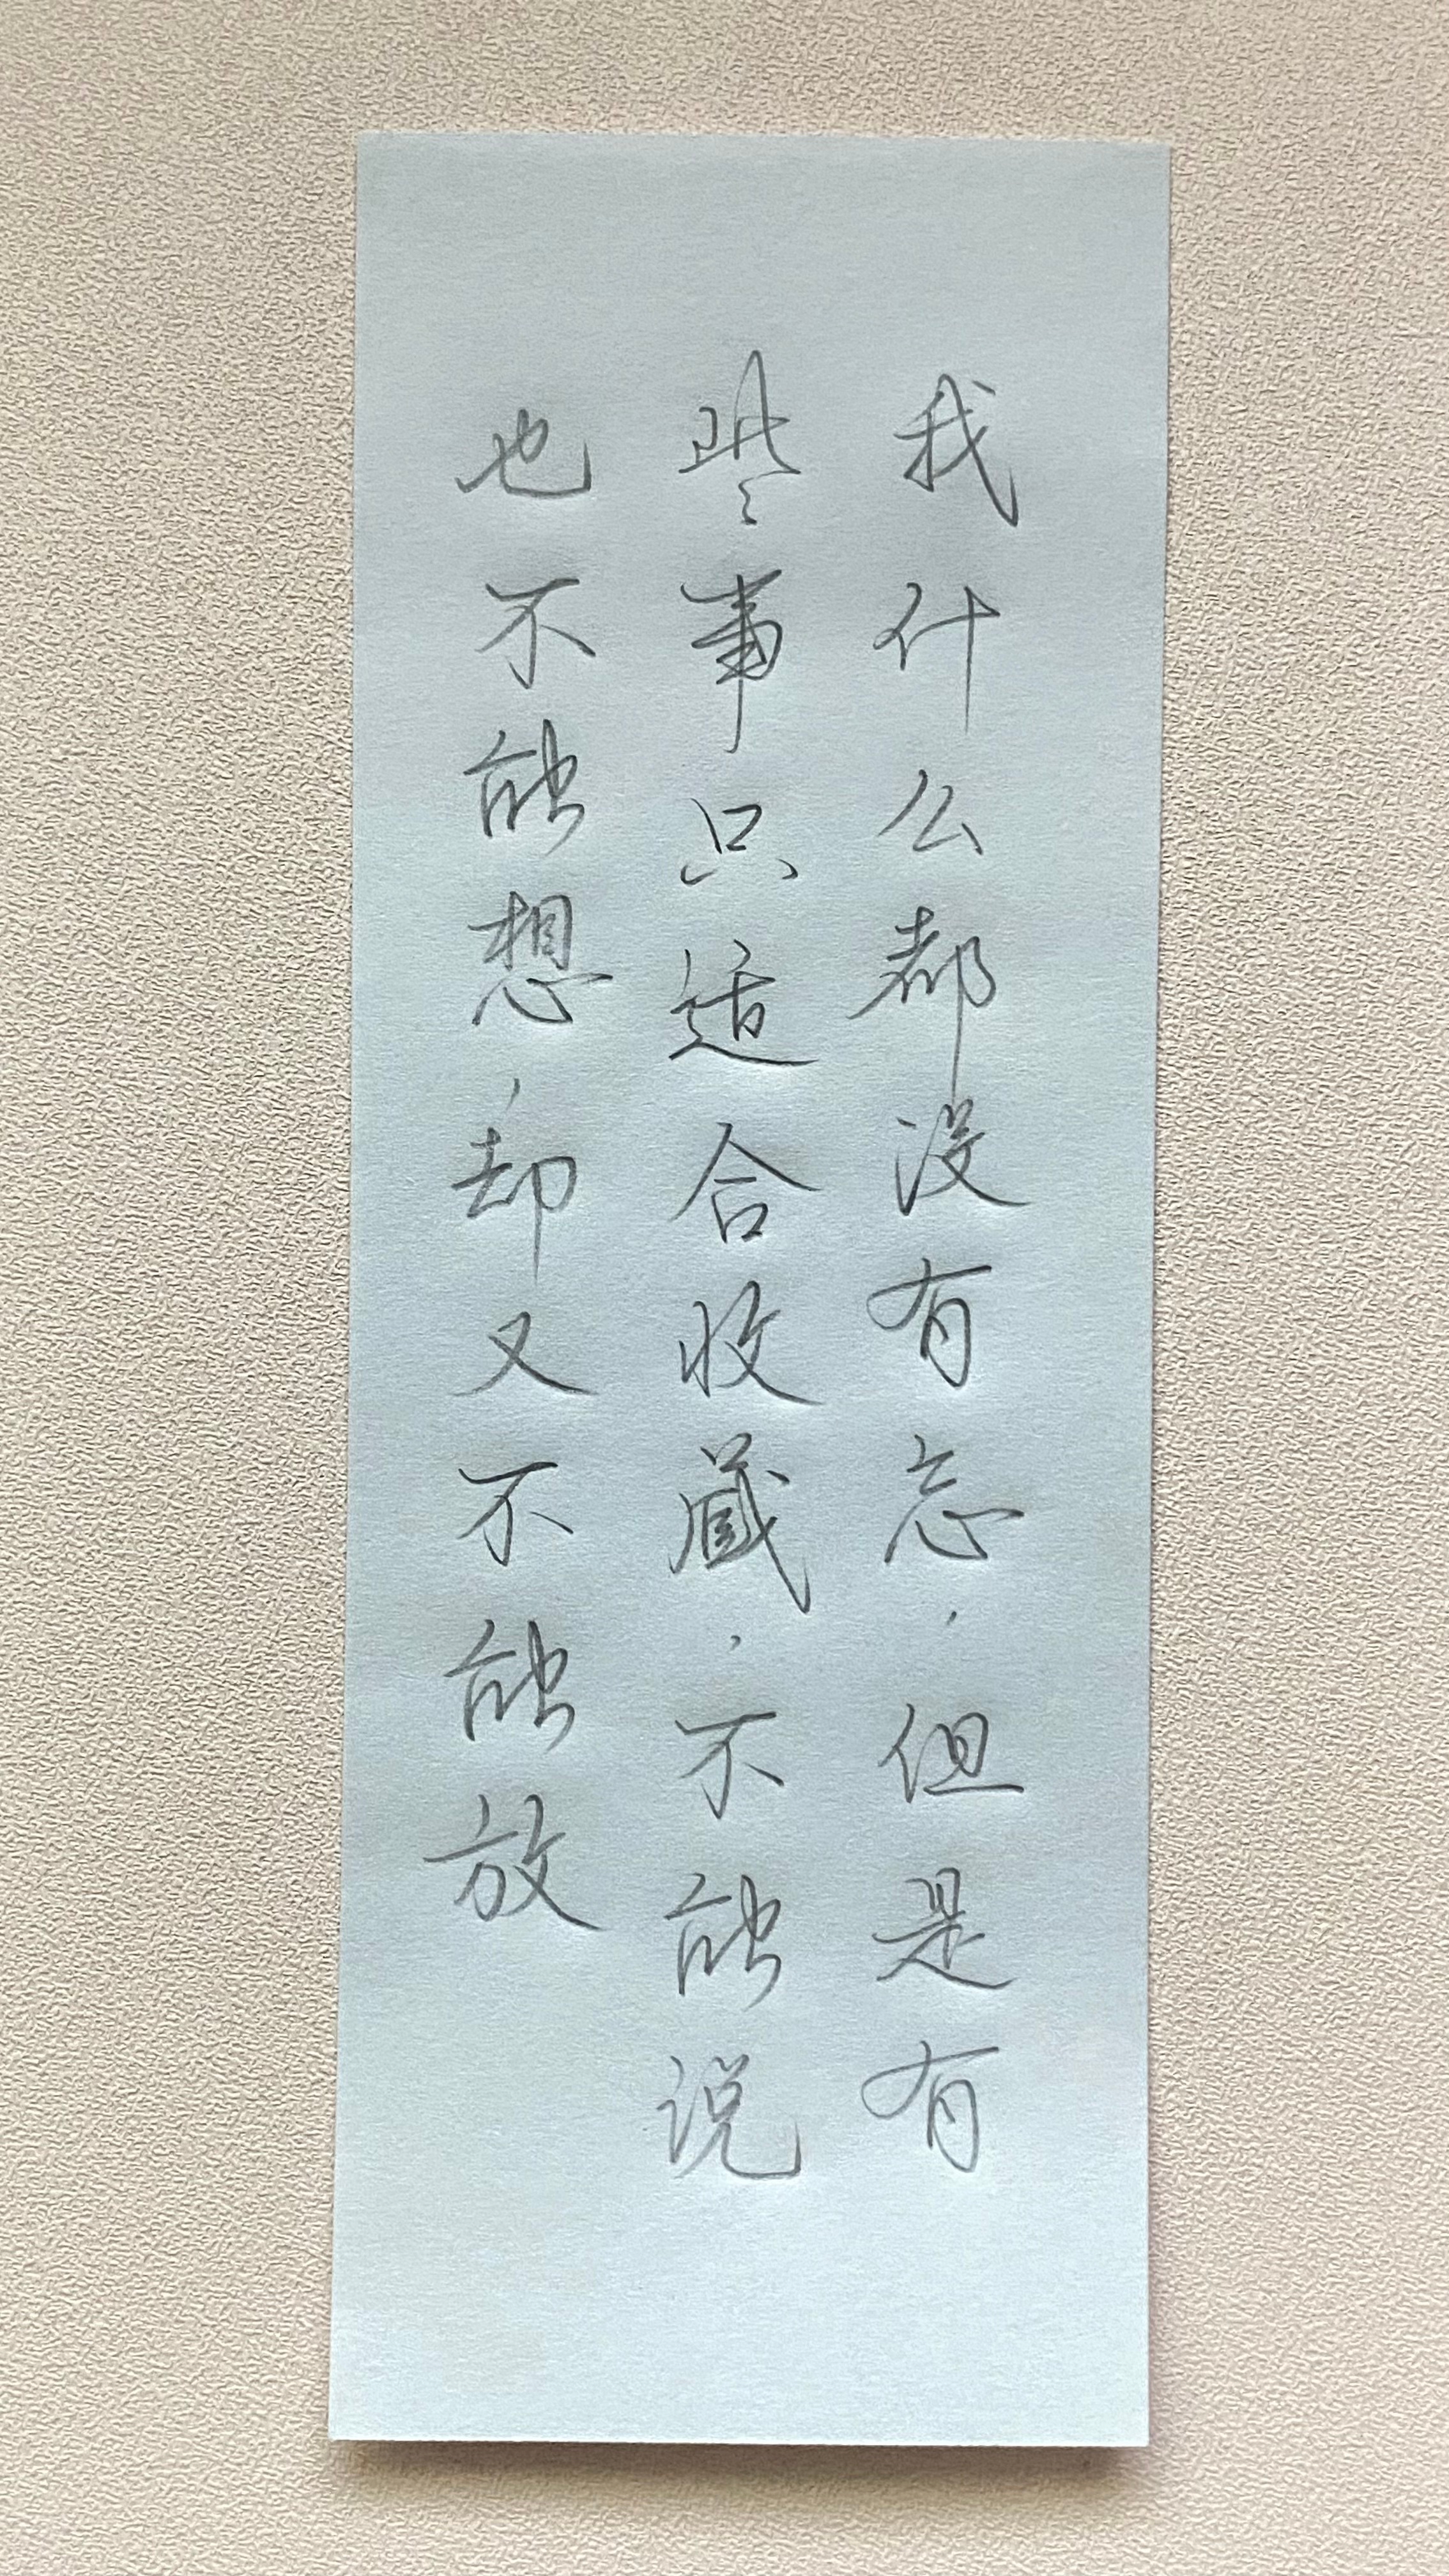 我什么都没有忘,但是有
些事只适合收藏,不能说
也不能想,却又不能放